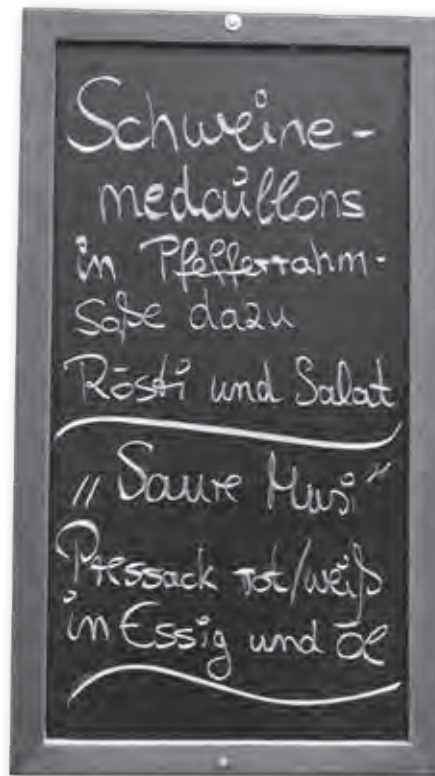 Schweine-
medaillons
in Pfefferrahm-
soße dazu
Rösti und Salat
„Saure Musi“
Pressack rot/weiß
in Essig und Öl